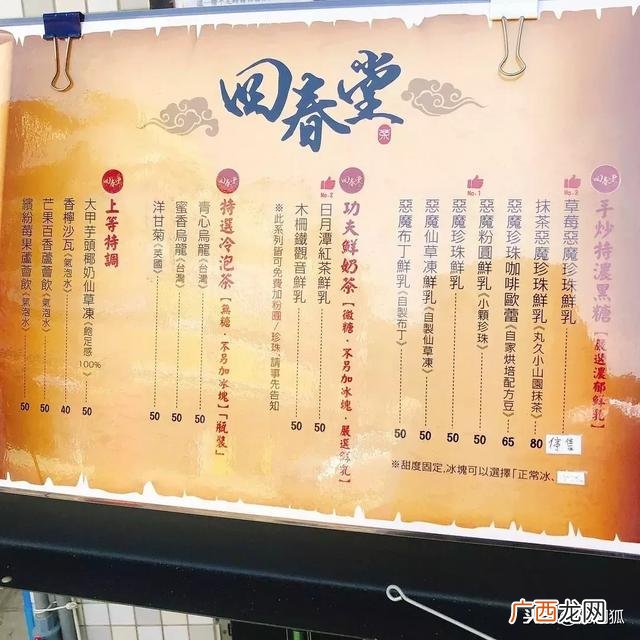 回春堂
茶
回春堂
手炒特濃黑糖【嚴選濃郁鮮乳】
No.3
草莓惡魔珍珠鮮乳 停售
抹茶惡魔珍珠鮮乳《丸久小山園抹茶》 80
惡魔珍珠咖啡歐蕾《自家烘培配方豆》 65
No.1
惡魔粉圓鮮乳《小顆珍珠》 50
惡魔珍珠鮮乳 50
惡魔仙草凍鮮乳《自製仙草凍》 50
惡魔布丁鮮乳《自製布丁》 50
※甜度固定,冰塊可以選擇「正常冰、
回春堂
功夫鮮奶茶【微糖·不另加冰塊·嚴選鮮乳】
No.2
日月潭紅茶鮮乳 50
木柵鐵觀音鮮乳 50
※此系列皆可免費加粉圓/珍珠 請事先告知
回春堂
特選冷泡茶【無糖·不另加冰塊】「瓶裝」
青心烏龍《台灣》 50
蜜香烏龍《台灣》 50
洋甘菊《英國》 50
回春堂
上等特調
大甲芋頭椰奶仙草凍《飽足感100%》 50
香檸沙瓦《氣泡水》 40
芒果百香蘆薈飲《氣泡水》 50
繽紛莓果蘆薈飲《氣泡水》 50
广西龙网
狐